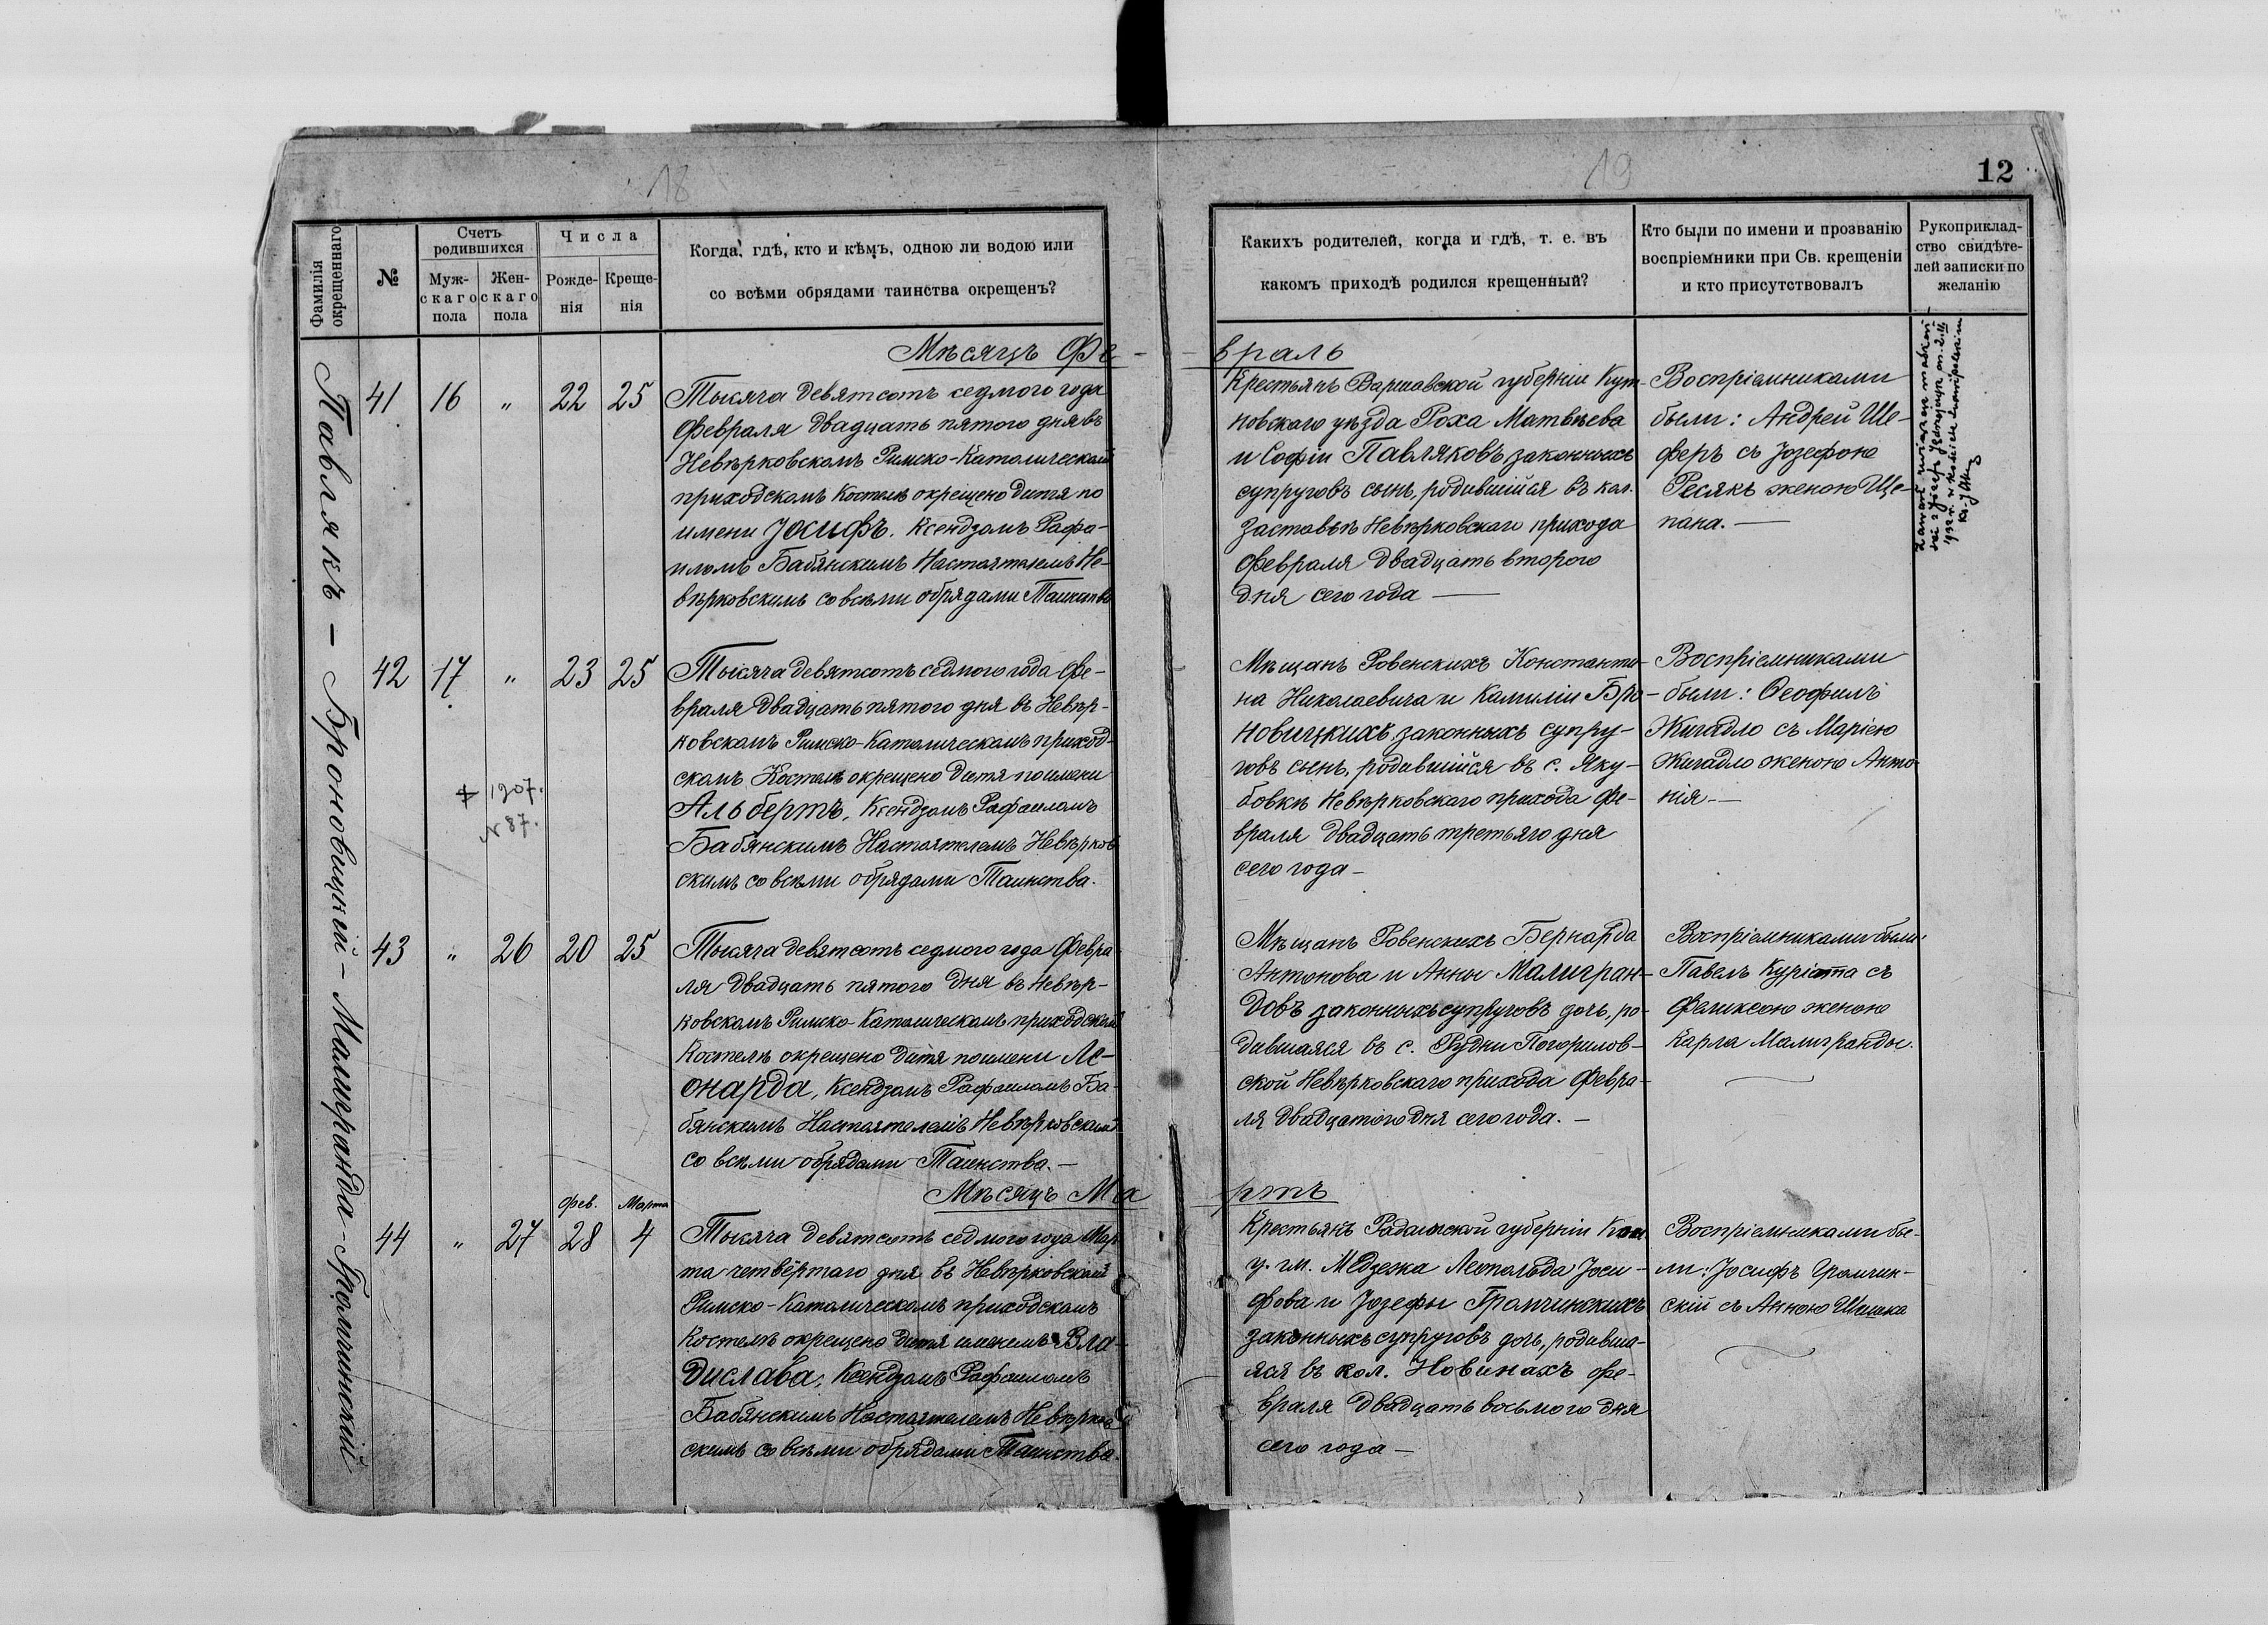 18
19
12
Фамилія окрещеннаго
№
Счетъ родившихся
Муж-скаго пола
Жен-скаго пола
Числа
Рожде-нія
Креще-нія
Когда, гдѣ, кто и кѣмъ, одною ли водою или
со всѣми обрядами таинства окрещенъ?
Какихъ родителей, когда и гдѣ, т. е. въ
какомъ приходѣ родился крещенный?
Кто были по имени и прозванію
воспріемники при Св. крещеніи
и кто присутствовалъ
Рукоприклад-
ство свидѣте-
лей записки по
желанію
Павлякъ – Броновицкій – Малигранда – Громчинскій
Мѣсяцъ Фе-
-враль
41 16 " 22 25
Тысяча девятсотъ седмого года
Февраля двадцать пятого дня въ
Невѣрковскомъ Римско-Католическомъ
приходскомъ Костелѣ окрещено дитя по
имени Іосифъ. Ксендзомъ Рафа-
иломъ Бабянскимъ Настоятелемъ Не-
вѣрковскимъ со всѣми обрядами Таинства
Крестьянъ Варшавской губерніи Кут-
новскаго уѣзда Роха Матвѣева
и Софіи Павляковъ законныхъ
супруговъ сынъ, родившійся въ кол.
Заставѣ Невѣрковскаго прихода
Февраля двадцать второго
дня сего года —
Воспріемниками
были: Андрей Ше-
феръ съ Іозефою
Песякъ женою Ще-
пана. —
42 17 " 23 25
+ 1907.
N 87.
Тысяча девятсотъ седмого года Фе-
враля двадцать пятого дня въ Невѣр-
ковскомъ Римско-Католическомъ приход-
скомъ Костелѣ окрещено дитя по имени
Альбертъ, Ксендзомъ Рафаиломъ
Бабянскимъ Настоятелемъ Невѣрков
скимъ со всѣми обрядами Таинства.
Мѣщанъ Ровенскихъ Константи-
на Николаевича и Камиліи Бро-
новицкихъ законныхъ супру-
говъ сынъ, родившійся въ с. Яку-
бовкѣ Невѣрковскаго прихода Фе-
враля двадцать третьяго дня
сего года —
Воспріемниками
были: Ѳеофилъ
Жигадло съ Маріею
Жигадло женою Анто-
нія. —
43 " 26 20 25
Тысяча девятсотъ седмого года Февра
ля двадцать пятого дня въ Невѣр-
ковскомъ Римско-Католическомъ приходскомъ
Костелѣ окрещено дитя по имени Ле-
онарда, Ксендзомъ Рафаиломъ Ба-
бянскимъ Настоятелемъ Невѣрковскимъ
со всѣми обрядами Таинства. —
Мѣщанъ Ровенскихъ Бернарда
Антонова и Анны Малигран-
довъ законныхъ супруговъ дочь, ро-
дившаяся въ с. Рудни Погорилов-
ской Невѣрковскаго прихода Февра-
ля двадцатого дня сего года. —
Воспріемниками были:
Павелъ Куріатта съ
Феликсою женою
Карла Малигранды.
Мѣсяцъ Ма
ртъ
Фев. Марта
44 " 27 28 4
Тысяча девятсотъ седмого года Мар
та четвёртаго дня въ Невѣрковскомъ
Римско-Католическомъ приходскомъ
Костелѣ окрещено дитя именемъ Вла-
дислава, Ксендзомъ Рафаиломъ
Бабянскимъ Настоятелемъ Невѣрков
скимъ со всѣми обрядами Таинства.
Крестьянъ Радомской губерніи
у. гм. Медзежа Леопольда Іоси-
фова и Іозефы Громчинскихъ
законныхъ супруговъ дочь, родивша-
яся въ кол. Новинахъ фе-
враля двадцать восьмого дня
сего года —
Воспріемниками бы-
ли: Іосифъ Громчин-
скій съ Анною